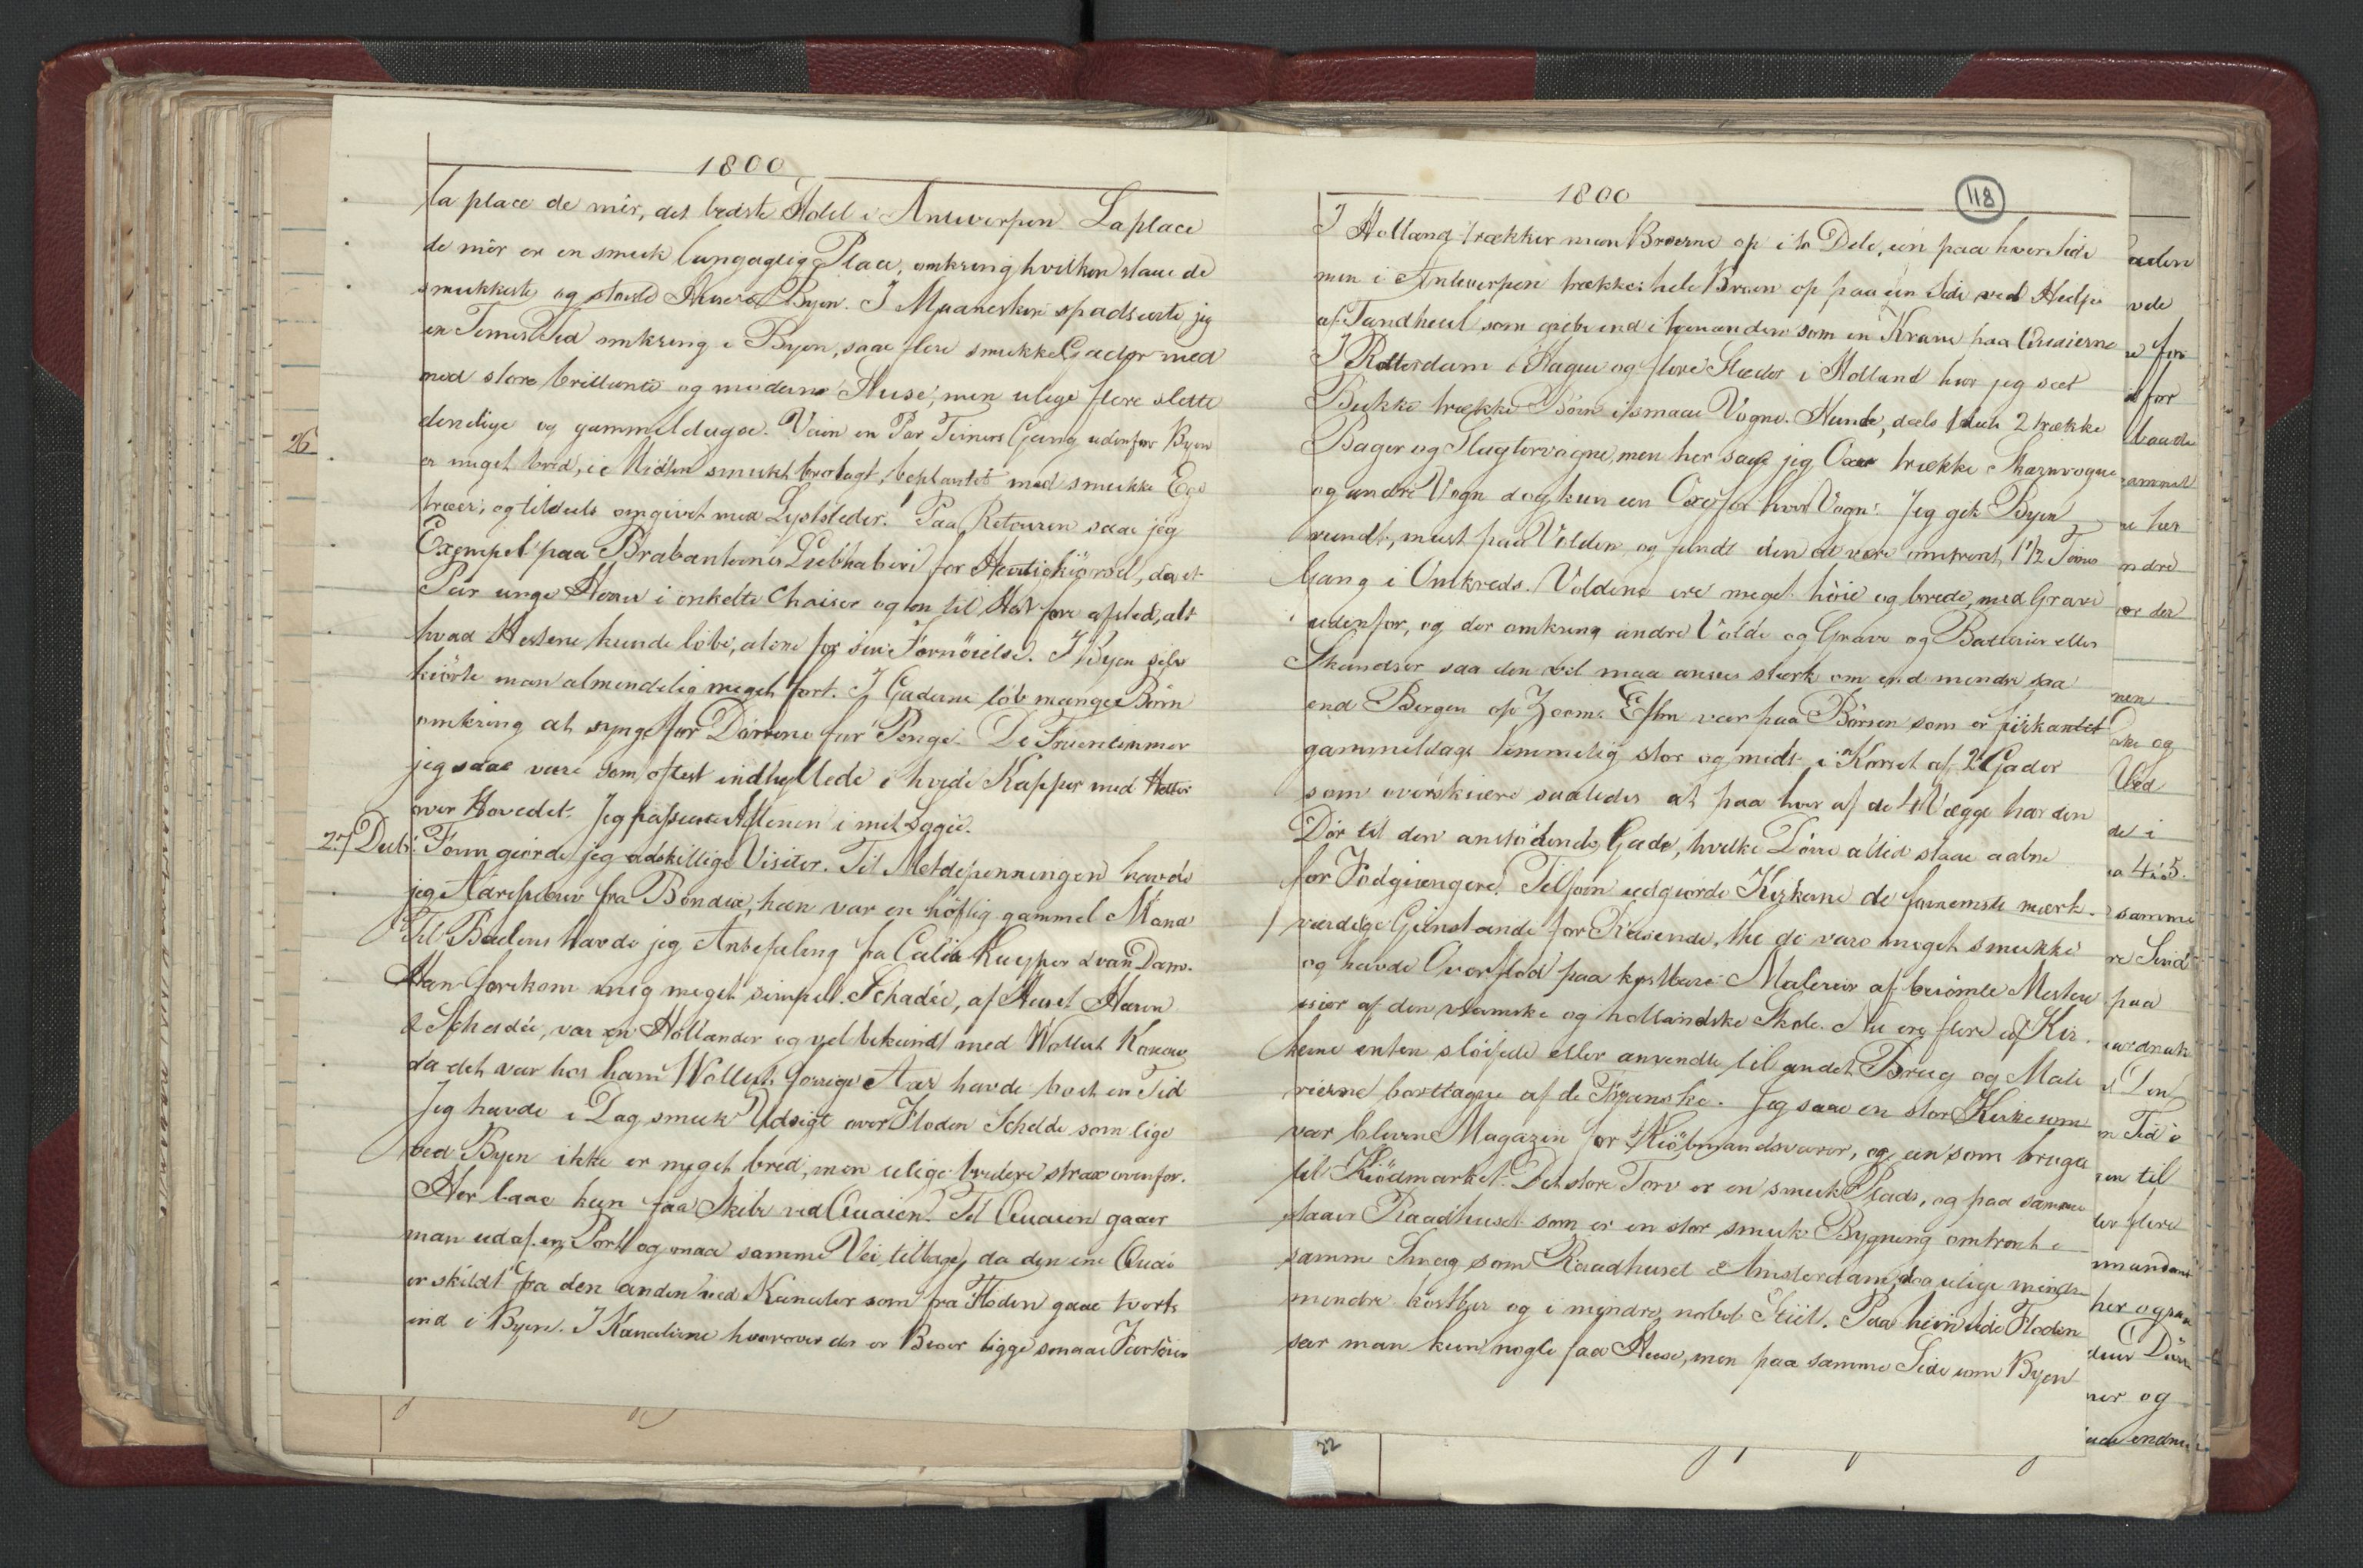 1800
la place de mèr, det bedste Hotel i Antwerpen. La place
de mèr er en smuk langagtig Place, omkring hvilken staae de
smukkeste og störste Huse i Byen. I Maaneskin spadserte jeg
en Times Tid omkring i Byen, saae flere smukke Gader med
med store brillante og moderne Huse, men ulige flere slette
elendige og gammeldags. Veien en Par Timers Gang udenfor Byen
26
er meget bred, i Midten smukt brolagt, beplantet med smukke Ege
træer, og tildeels omgivet med Lyststeder. Paa Retouren saae jeg
Exempel paa Brabanternes Liebhaberi for Hestickiörsel, da et
Par unge Herrer i enkelte Chaiser og en til Hest fore afsted, alt
hvad Hestene kunde löbe, alene for sin Fornöielse. I Byen selv
kiörte man almindelig meget fort. I Gaderne löb mange Börn
omkring at synge for Dörrene for Penge. De Fruentimmer
jeg saae vare som oftest indhyllede i hvide Kapper med Hætter
over Hovedet. Jeg passerte Aftenen i mit Logie.
27 Decb: Form giorde jeg adskillige Visiter. Til Metdepenningen havde
jeg Adressebrev fra Bondue, han var en höflig gammel Mand
Til Baelens havde jeg Anbefaling fra Calis Kuyper & van Dam.
Han forekom mig meget simpel. Schadée, af Huset Haren
& Schadée, var en Hollænder og vel bekiendt med Wollert Konow
da det var hos ham Wollert forrige Aar havde boet en Tid
Jeg havde i Dag smuk Udsigt over Floden Schelde som lige
ved Byen ikke er meget bred, men ulige bredere strax ovenfor.
Her laae kun faa Skibe ved Quaien. Til Quaien gaaer
man ud af en Port og maa samme Vei tilbage, da den ene Quai
er skildt fra den anden ved Kanaler som fra Floden gaae tverts
ind i Byen. I Kanalerne hvorover der er Broer ligge smaae Fartöier
1800
118
I Holland trækker man Broerne op i to Dele, een paa hver Side
men i Antwerpen trækkes hele Broen op paa een Side ved Hielp
af Tandhiul som gribe ind i hverandre som en Kran paa Quaierne
I Rotterdam i Hagen og flere Stæder i Holland hvor jeg saae
Bukke trække Börn i smaae Vogne. Hunde, deels 1 deels 2 trække
Bager og Slagtervogne, men her saae jeg Oxer trække Skarnvogne
og andre Vogn dog kun een Oxe for hver Vogn. Jeg gik Byen
rundt, mest paa Volden og fandt den at være omtrent 1 1/2 Times
Gang i Omkreds. Voldene ere meget höie og brede, med Grave
udenfor, og der omkring andre Volde og Grave og Batterier eller
Skandser saa den vel maa ansees stærk om end mindre saa
end Bergen op Zoom. Eftm var paa Börsen som er fiirkantet
gammeldags temmelig stor og midt i Korset af 2 Gader
som overskiære saaledes at paa hver af de 4 Vægge har den
Dör til den anstödende Gade, hvilke Dörre altid staae aabne
for Fodgiængere. Tilforn udgiorde Kirkerne de fornemste mærk-
værdige Gienstande for Reisende, thi de vare meget smukke
og havde Overflod paa kostbare Malerier af berömte Mestere
især af den vlamske og hollandske Skole. Nu ere flere af Kir-
kerne enten slöifede eller anvendte til andet Brug og Male
rierne borttagne af de Franske. Jeg saae en stor Kirke som
var bleven Magazin for Kiöbmandsvarer, og een som bruges
til Kiödmarket. Det store Torv er en smuk Plads, og paa samme
staaer Raadhuset som er en stor smuk Bygning omtrent i
samme Smag som Raadhuset i Amsterdam, dog ulige mindre
mindre kostbar og i mindre nobel Stiil. Paa hiin Side Floden
seer man kun nogle faa Huse, men paa samme Side som Byen
22